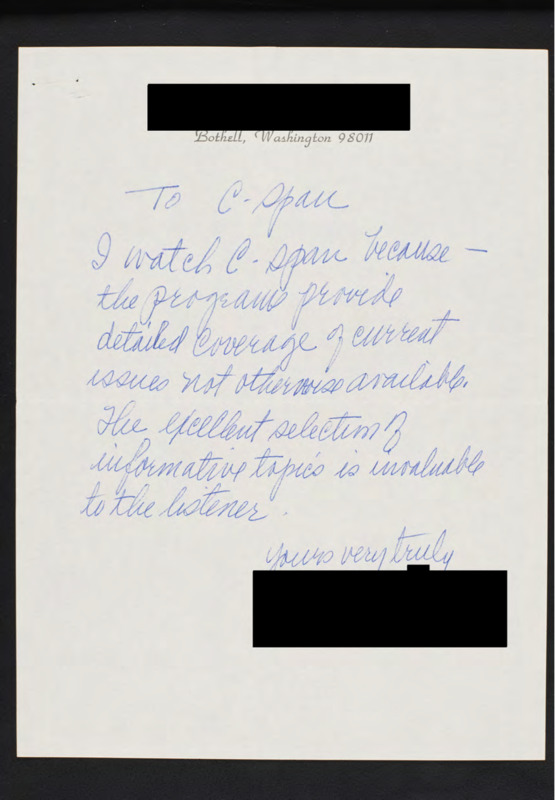 Bothell, Washington 98011
To C-Span
I watch C-Span because —
the programs provide
detailed coverage of current
issues not otherwise available.
The excellent selection of
informative topics is invaluable
to the listener.
Yours very truly